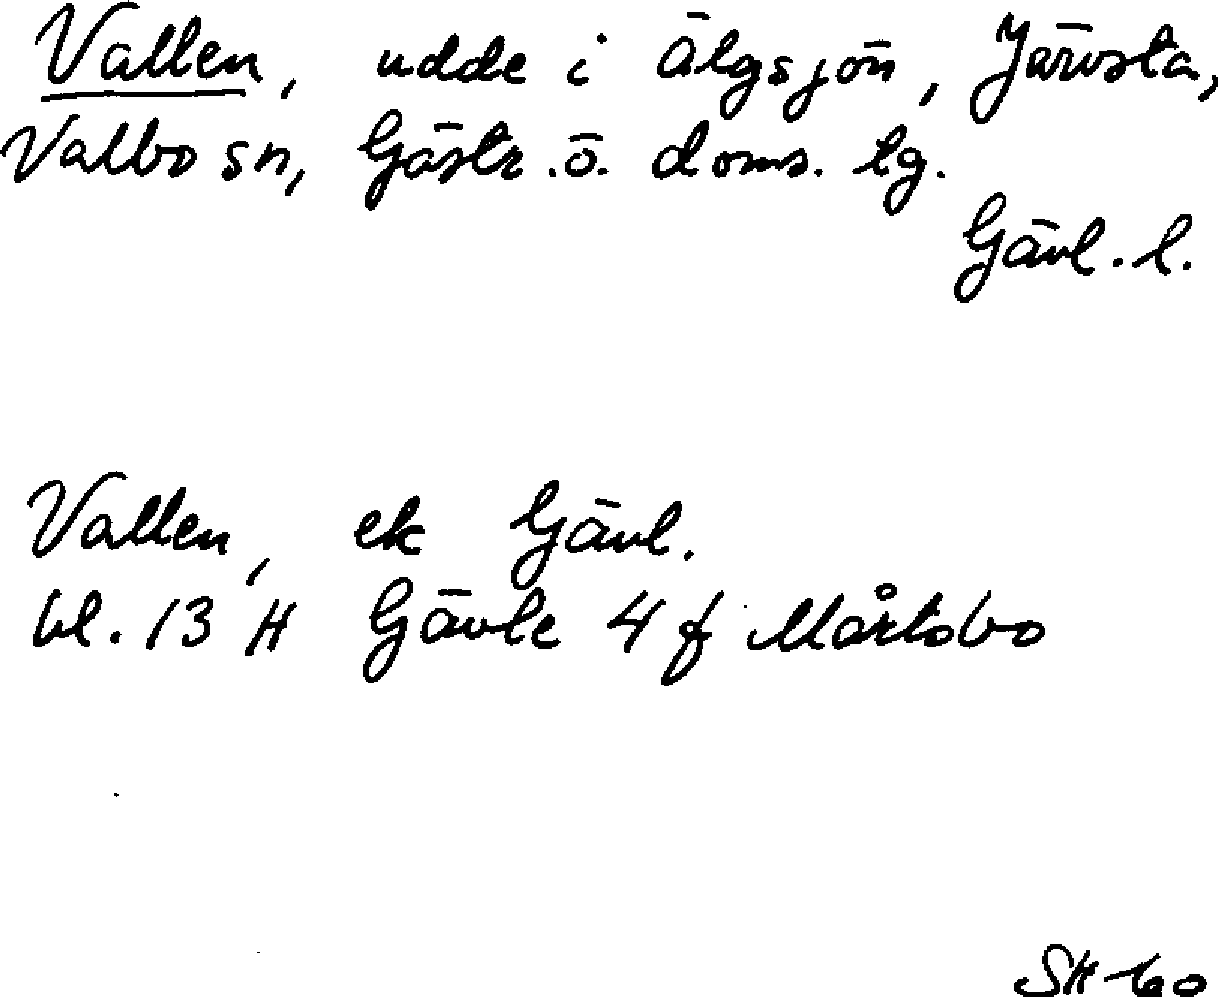 Vallen, udde i Älgsjön, Järvsta,
Valbo sn, Gästr. ö. doms. lg.
Gävl. l.
Vallen, ek Gävl.
bl. 13 H Gävle 4 f Mårtsbo
SH-60